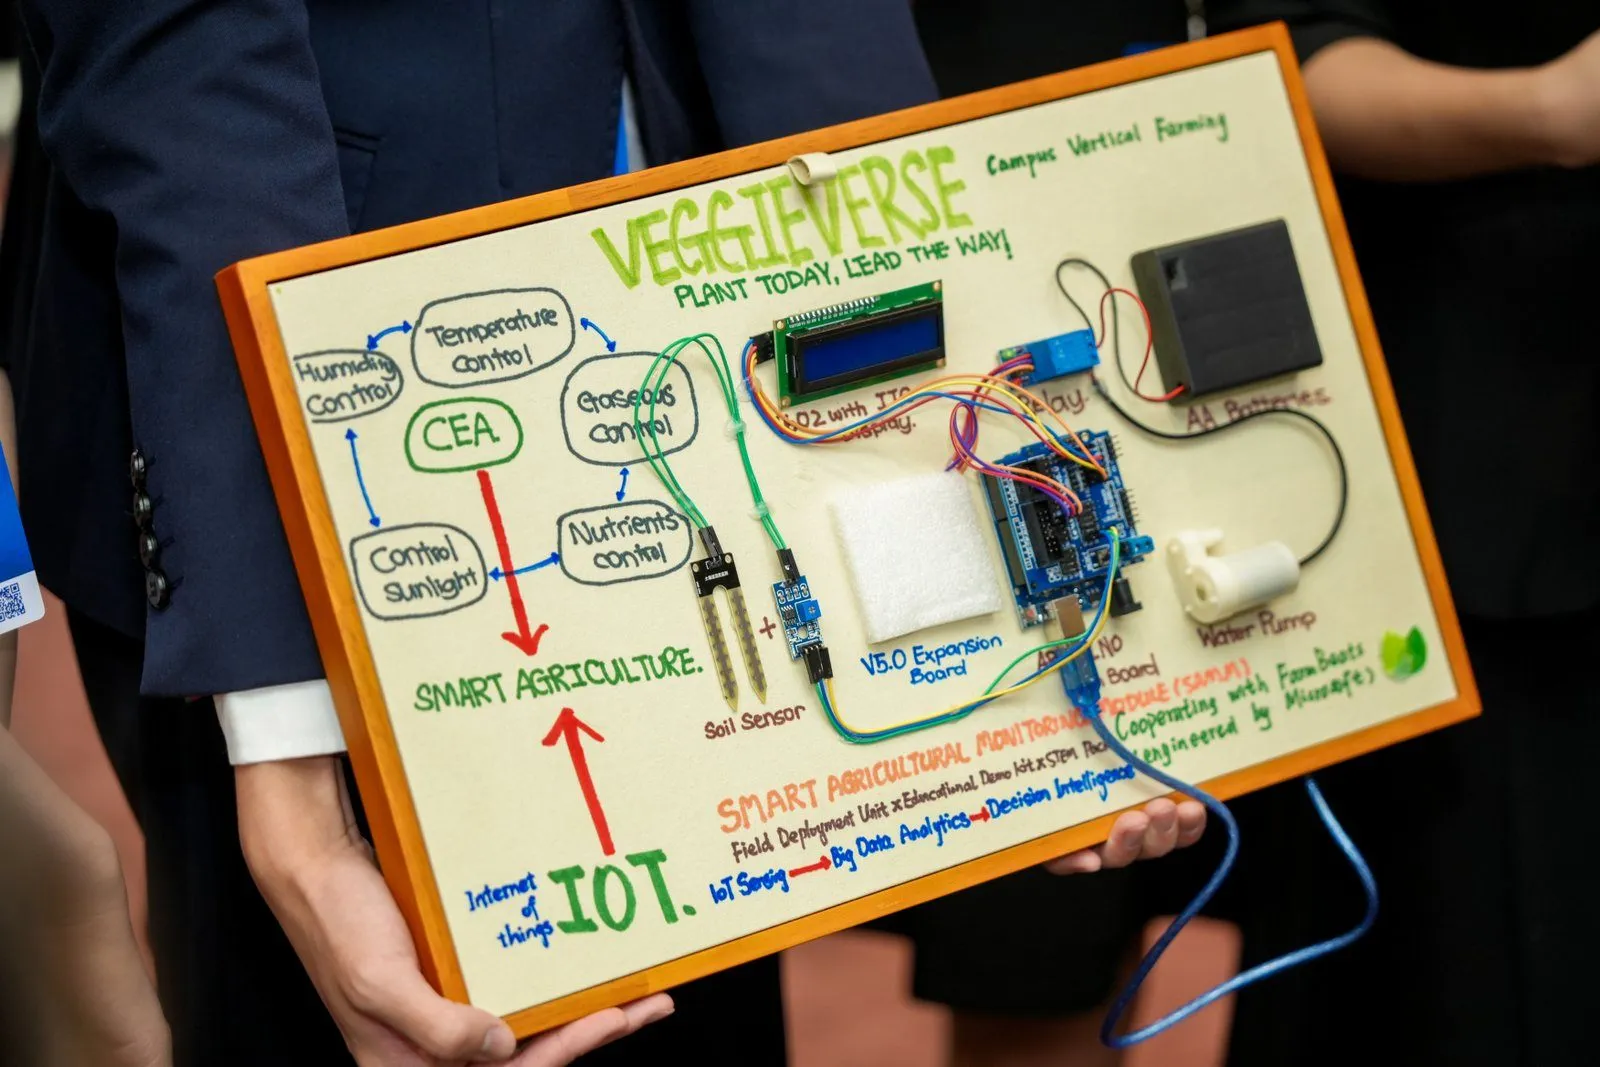 Campus Vertical Farming
VEGGIEVERSE
PLANT TODAY, LEAD THE WAY!
Temperature
control
Humidity
control
Gaseous
control
CEA
Nutrients
control
Control
sunlight
SMART AGRICULTURE.
Internet
of
things
IOT.
with
Display.
Relay
AA Batteries
Water Pump
V5.0 Expansion
Board
Board
+
Soil Sensor
SMART AGRICULTURAL MONITORING MODULE (SAMM)
Field Deployment Unit x Educational Demo Kit x STEM
IoT Sensing → Big Data Analytics → Decision Intelligence
Cooperating with FarmBeats
engineered by Microsoft)